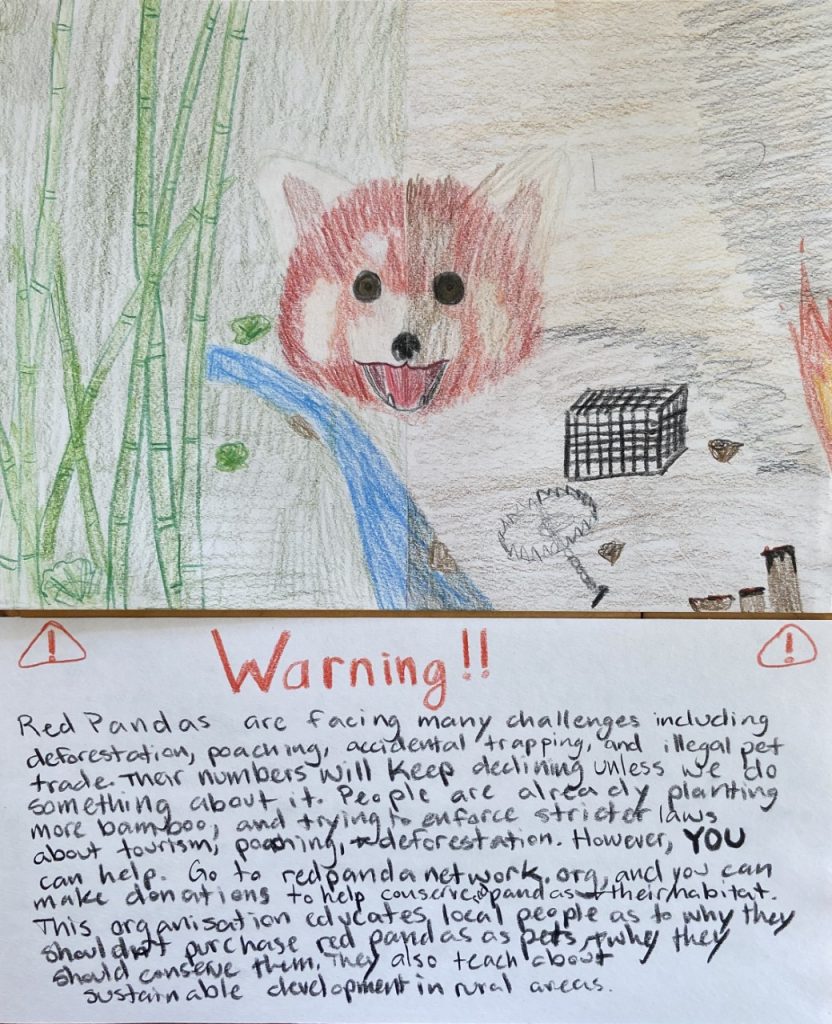 ! Warning!! !
Red Pandas are facing many challenges including
deforestation, poaching, accidental trapping, and illegal pet
trade. Their numbers will keep declining unless we do
something about it. People are already planting
more bamboo, and trying to enforce stricter laws
about tourism, poaching, + deforestation. However, YOU
can help. Go to redpandanetwork.org, and you can
make donations to help conserve pandas + their habitat.
This organisation educates local people as to why they
shouldn't purchase red pandas as pets, + why they
should conserve them. They also teach about
sustainable development in rural areas.